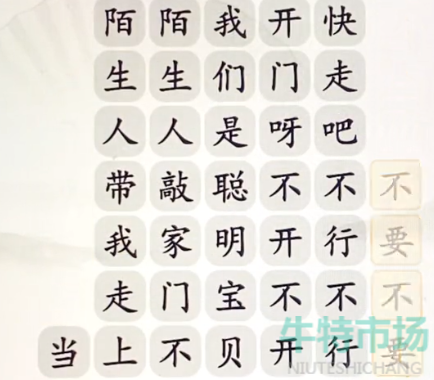 不要不要
快走吧不行不行
开门呀不开不开
我们是聪明宝贝
陌生人敲家门不
陌生人带我走上
当
牛特市场
NIUTESHICHANG